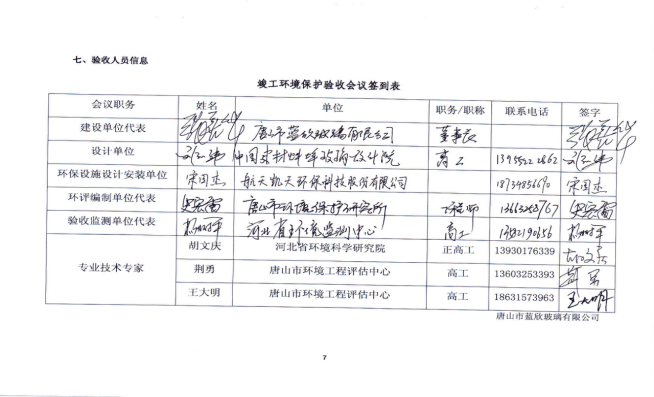 七、验收人员信息
竣工环境保护验收会议签到表
会议职务 姓名 单位 职务/职称 联系电话 签字
建设单位代表 唐山市蓝欣玻璃有限公司 董事长
设计单位 中国建材蚌埠玻璃设计院 高工
环保设施设计安装单位 宋国杰 航天凯天环保科技股份有限公司 18734856690 宋国杰
环评编制单位代表 唐山市环境保护研究所 工程师 13663258767
验收监测单位代表 河北省环境监测中心 高工 13582190656
专业技术专家 胡文庆 河北省环境科学研究院 正高工 13930176339
荆勇 唐山市环境工程评估中心 高工 13603253393
王大明 唐山市环境工程评估中心 高工 18631573963 王大明
唐山市蓝欣玻璃有限公司
7